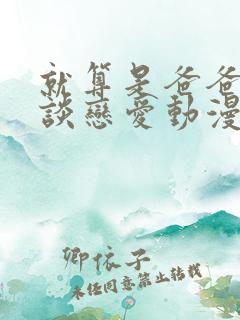 就算是爸爸
談戀愛動漫
卿依子
未經同意禁止轉載